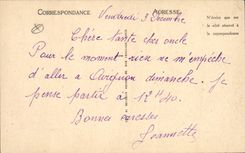 CORRESPONDANCE
ADRESSE
N'écrire que sur
le côté réservé à
la correspondance
Vendredi 3 Décembre
Chère tante cher oncle
Pour le moment rien ne m'empêche
d'aller a dimanche. Je
pense partir à 12H40.
Bonnes caresses
Jeannette